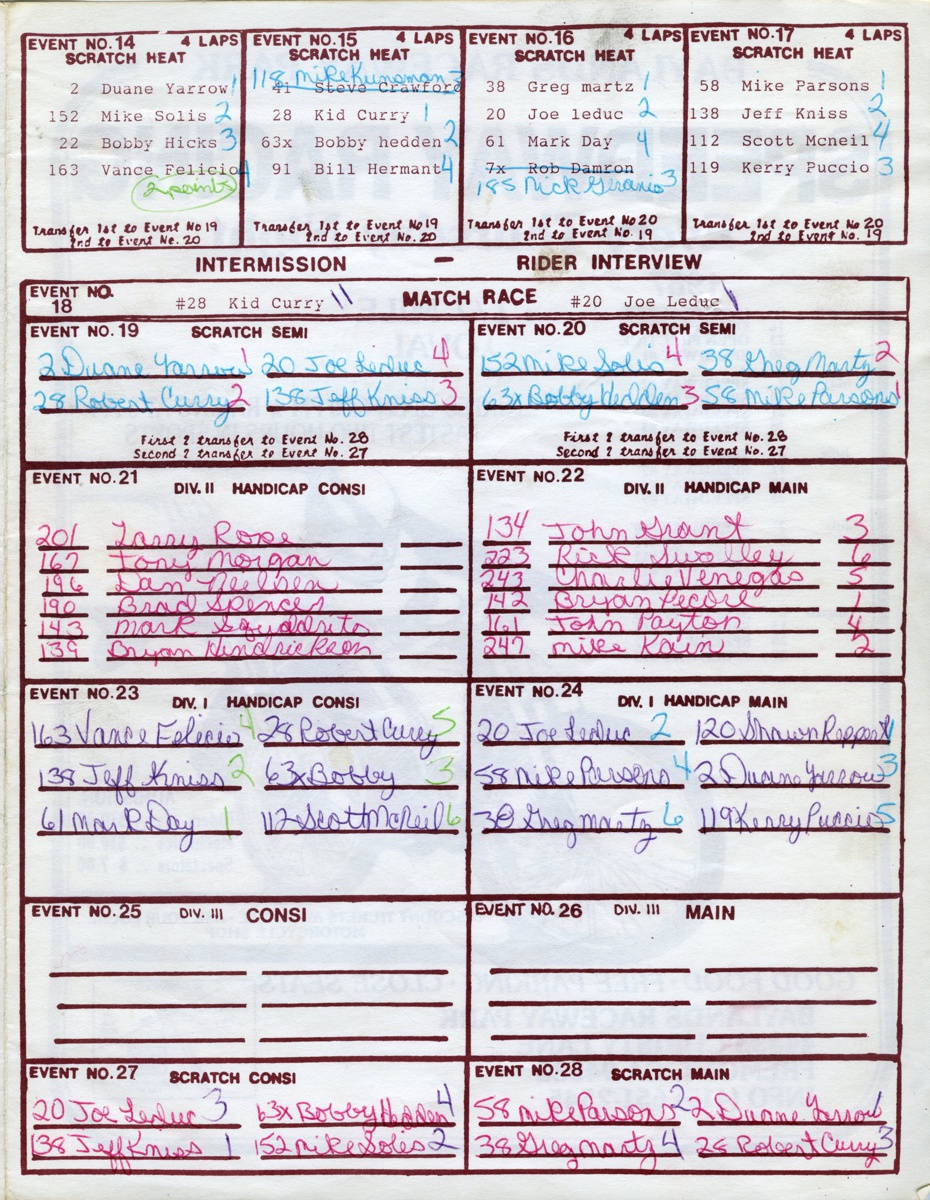 EVENT NO.14 4 LAPS
SCRATCH HEAT
2 Duane Yarrow 1
152 Mike Solis 2
22 Bobby Hicks 3
163 Vance Felicio 4
2 points
Transfer 1st to Event No 19
2nd to Event No. 20
EVENT NO.15 4 LAPS
SCRATCH HEAT
118 Mike Kunsman 3
41 Steve Crawford
28 Kid Curry 1
63x Bobby hedden 2
91 Bill Hermant 4
Transfer 1st to Event No 19
2nd to Event No. 20
EVENT NO.16 4 LAPS
SCRATCH HEAT
38 Greg martz 1
20 Joe leduc 2
61 Mark Day 4
7x Rob Damron
185 Rick Geranio 3
Transfer 1st to Event No 20
2nd to Event No. 19
EVENT NO.17 4 LAPS
SCRATCH HEAT
58 Mike Parsons 1
138 Jeff Kniss 2
112 Scott Mcneil 4
119 Kerry Puccio 3
Transfer 1st to Event No 20
2nd to Event No. 19
INTERMISSION - RIDER INTERVIEW
EVENT NO. 18 #28 Kid Curry \\ MATCH RACE #20 Joe Leduc \
EVENT NO.19 SCRATCH SEMI
2 Duane Yarrow 1 20 Joe Leduc 4
28 Robert Curry 2 138 Jeff Kniss 3
First 2 transfer to Event No. 28
Second 2 transfer to Event No. 27
EVENT NO.20 SCRATCH SEMI
152 Mike Solis 4 38 Greg Martz 2
63x Bobby Hedden 3 58 Mike Parsons 1
First 2 transfer to Event No. 28
Second 2 transfer to Event No. 27
EVENT NO.21
DIV. II HANDICAP CONSI
201 Larry Rose
167 Tony Morgan
196 Dan Neilsen
190 Brad Spencer
143 Mark Squadrito
139 Bryan Hendrickson
EVENT NO.22
DIV. II HANDICAP MAIN
134 John Grant 3
223 Rick Swolley 6
243 Charlie Venegas 5
142 Bryan Pecore 1
161 John Payton 4
247 Mike Kain 2
EVENT NO.23
DIV. I HANDICAP CONSI
163 Vance Felicio 4 28 Robert Curry 5
138 Jeff Kniss 2 63x Bobby 3
61 Mark Day 1 112 Scott McNeil 6
EVENT NO.24
DIV. I HANDICAP MAIN
20 Joe Leduc 2 120 Shawn Reppert 1
58 Mike Parsons 4 2 Duane Yarrow 3
38 Greg Martz 6 119 Kerry Puccio 5
EVENT NO.25 DIV. III CONSI
EVENT NO.26 DIV. III MAIN
EVENT NO.27 SCRATCH CONSI
20 Joe Leduc 3 63x Bobby Hedden 4
138 Jeff Kniss 1 152 Mike Solis 2
EVENT NO.28 SCRATCH MAIN
58 Mike Parsons 2 2 Duane Yarrow 1
38 Greg Martz 4 28 Robert Curry 3